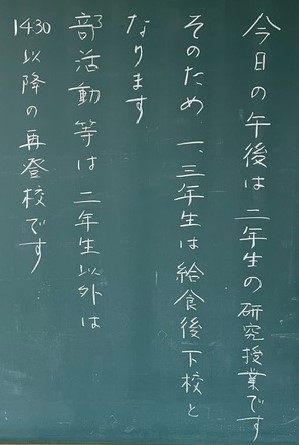 今日の午後は二年生の研究授業です
そのため一、三年生は給食後下校と
なります
部活動等は二年生以外は
1430以降の再登校です